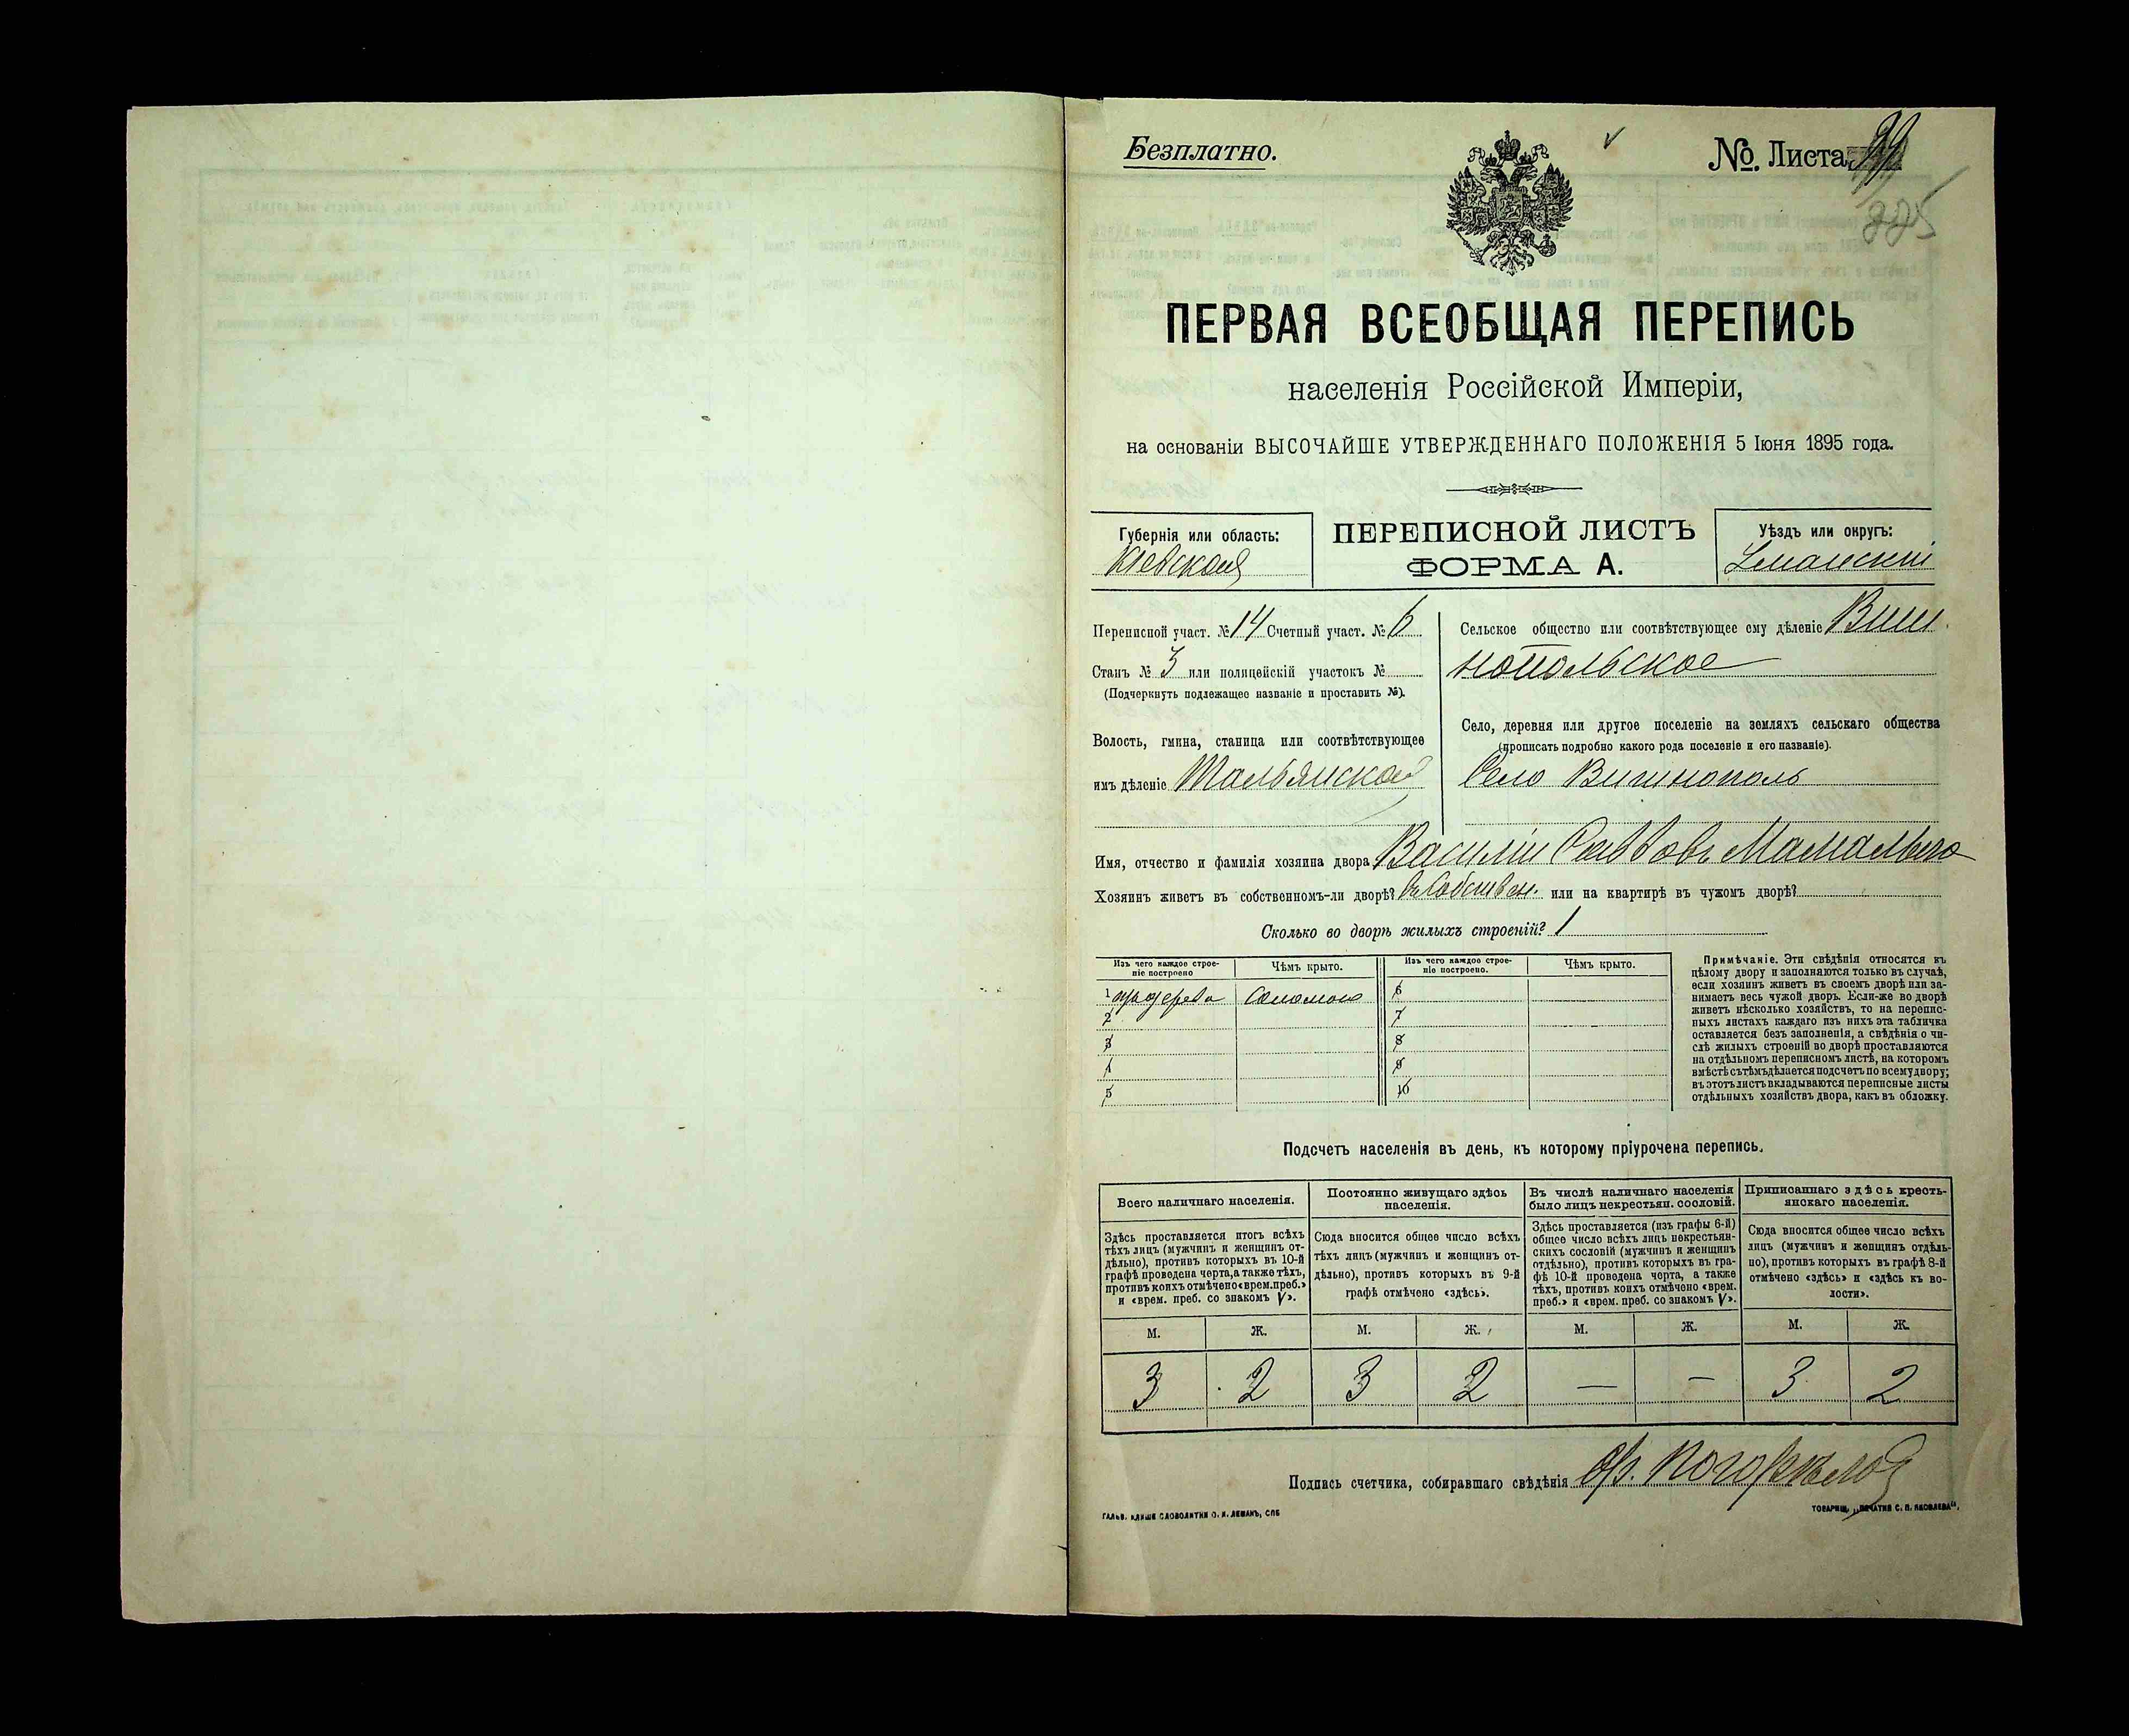 Безплатно.
№. Листа
225
ПЕРВАЯ ВСЕОБЩАЯ ПЕРЕПИСЬ
населенія Россійской Имперіи,
на основаніи ВЫСОЧАЙШЕ УТВЕРЖДЕННАГО ПОЛОЖЕНІЯ 5 Іюня 1895 года.
Губернія или область:
Кіевская
ПЕРЕПИСНОЙ ЛИСТЪ
ФОРМА А.
Уѣздъ или округъ:
Уманскій
Переписной участ. № 14 Счетный участ. № 6
Станъ № 3 или полицейскій участокъ №
(Подчеркнуть подлежащее названіе и проставить №).
Волость, гмина, станица или соотвѣтствующее
имъ дѣленіе Тальянской
Сельское общество или соотвѣтствующее ему дѣленіе Виш
нопольское
Село, деревня или другое поселеніе на земляхъ сельскаго общества
(прописать подробно какого рода поселеніе и его названіе).
Село Вишнополь
Имя, отчество и фамилія хозяина двора: Василій Савовъ
Хозяинъ живетъ въ собственномъ-ли дворѣ? въ собствен. или на квартирѣ въ чужомъ дворѣ?
Сколько во дворѣ жилыхъ строеній? 1
Изъ чего каждое строе-
ніе построено
Чѣмъ крыто.
Изъ чего каждое строе-
ніе построено.
Чѣмъ крыто.
1 дерева Соломою 6
2 7
3 8
4 9
5 10
Примѣчаніе. Эти свѣдѣнія относятся къ
цѣлому двору и заполняются только въ случаѣ,
если хозяинъ живетъ въ своемъ дворѣ или за-
нимаетъ весь чужой дворъ. Если-же во дворѣ
живетъ нѣсколько хозяйствъ, то на перепис-
ныхъ листахъ каждаго изъ нихъ эта табличка
оставляется безъ заполненія, а свѣдѣнія о чи-
слѣ жилыхъ строеній во дворѣ проставляются
на отдѣльномъ переписномъ листѣ, на которомъ
вмѣстѣ съ тѣмъ дѣлается подсчетъ по всему двору;
въ этотъ листъ вкладываются переписные листы
отдѣльныхъ хозяйствъ двора, какъ въ обложку.
Подсчетъ населенія въ день, къ которому пріурочена перепись.
Всего наличнаго населенія.
Здѣсь проставляется итогъ всѣхъ
тѣхъ лицъ (мужчинъ и женщинъ от-
дѣльно), противъ которыхъ въ 10-й
графѣ проведена черта, а также тѣхъ,
противъ коихъ отмѣчено «врем. преб.»
и «врем. преб. со знакомъ V».
Постоянно живущаго здѣсь
населенія.
Сюда вносится общее число всѣхъ
тѣхъ лицъ (мужчинъ и женщинъ от-
дѣльно), противъ которыхъ въ 9-й
графѣ отмѣчено «здѣсь».
Въ числѣ наличнаго населенія
было лицъ некрестьян. сословій.
Здѣсь проставляется (изъ графы 6-й)
общее число всѣхъ лицъ некрестьян-
скихъ сословій (мужчинъ и женщинъ
отдѣльно), противъ которыхъ въ гра-
фѣ 10-й проведена черта, а также
тѣхъ, противъ коихъ отмѣчено «врем.
преб.» и «врем. преб. со знакомъ V».
Приписаннаго здѣсь кресть-
янскаго населенія.
Сюда вносится общее число всѣхъ
лицъ (мужчинъ и женщинъ отдѣль-
но), противъ которыхъ въ графѣ 8-й
отмѣчено «здѣсь» и «здѣсь къ во-
лости».
М. Ж. М. Ж. М. Ж. М. Ж.
3 2 3 2 — — 3 2
Подпись счетчика, собиравшаго свѣдѣнія Погорѣлов
ГАЛЬВ. КЛИШЕ СЛОВОЛИТНИ О. И. ЛЕМАНЪ, СПБ
ТОВАРИЩ. „ПЕЧАТНЯ С. П. ЯКОВЛЕВА“.